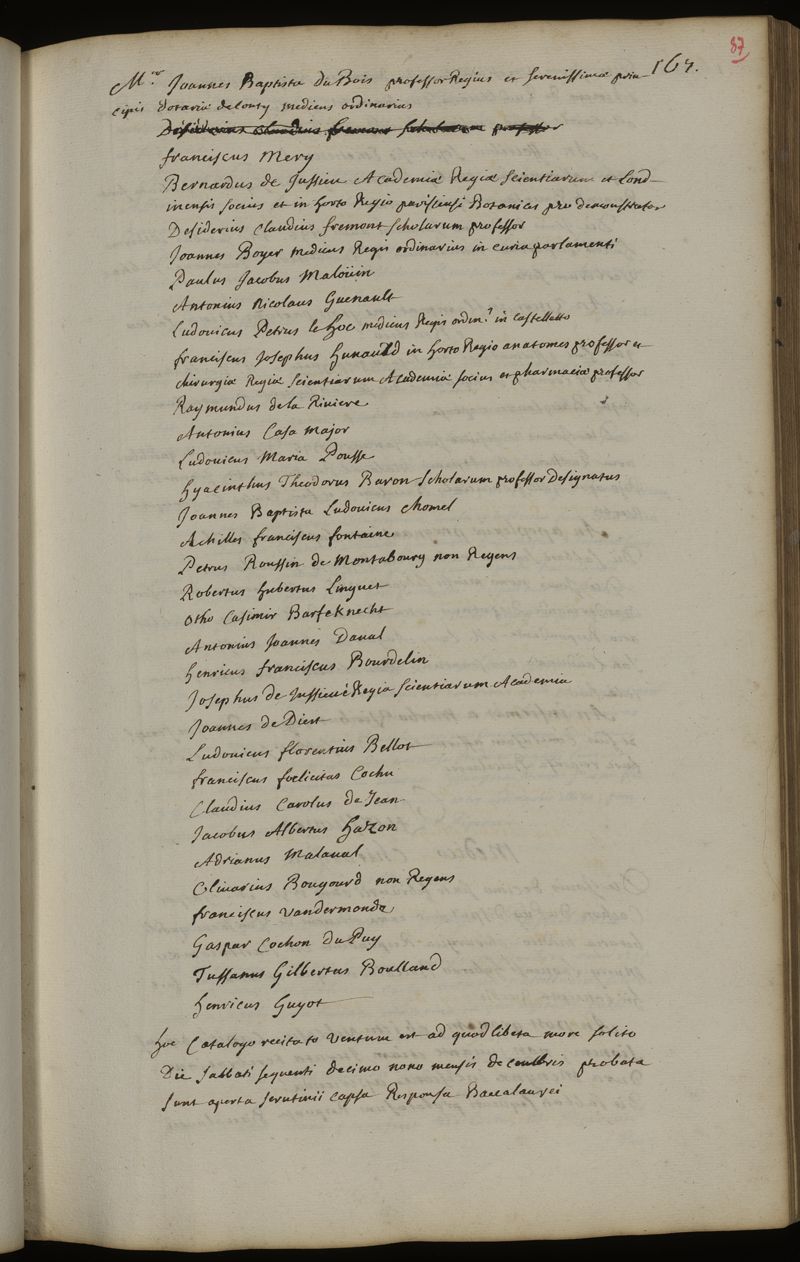 87
167.
M.er Joannes Baptista Du Bois professor Regius et serenissimæ prin-
cipis dotariæ de conty medicus ordinarius
Desiderius Claudius fremont scholarum professor
franciscus Mery
Bernardus de Jussieu Academiæ Regiæ Scientiarum et Lond-
inensis socius et in horto Regio parisiensi Botanices pro demonstrator
Desiderius Claudius fremont scholarum professor
Joannes Boyer medicus Regis ordinarius in curia parlamenti
Paulus Jacobus Maloüin
Antonius Nicolaus Guenault
Ludovicus Petrus le hoc medicus Regis ordin.s in castelletto
franciscus Josephus hunauld in horto Regio anatomes professor et
chirurgiæ Regiæ scientiarum Academiæ socius et pharmaciæ professor
Raymundus de la Riviere
Antonius Casa major
Ludovicus Maria Pousse
hyacinthus Theodorus Baron scholarum professor designatus
Joannes Baptista Ludovicus chomel
Achilles franciscus fontaine
Petrus Roussin de Montabourg non Regens
Robertus hubertus Linguet
Otho Casimir Barfeknecht
Antonius Joannes Daval
henricus franciscus Bourdelin
Josephus de Jussieu è Regia scientiarum Academia
Joannes de Diest
Ludovicus florentius Bellot
franciscus foelicitas Cochu
Claudius Carolus de Jean
Jacobus Albertus hazon
Adrianus Malaval
Olivarius Bougourd non Regens
franciscus vandermonde
Gaspar Cochon du Puy
Tussanus Gilbertus Boulland
henricus Guyot
hoc Catalogo recitato ventum est ad quodlibeta more solito
Die sabbati sequenti decimo nono mensis decembris probata
sunt aperta scrutinii capsa Responsa Baccalaurei